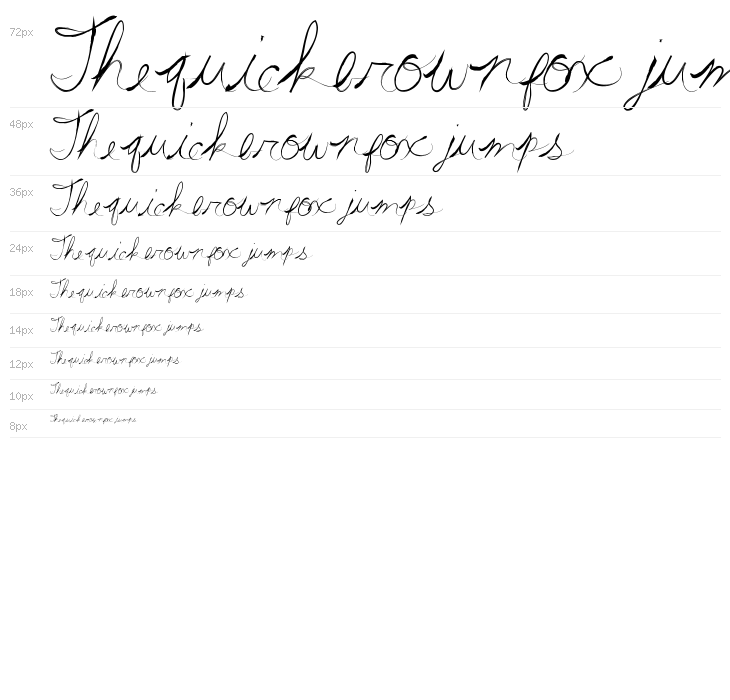 72px Thequick brownfox jum
48px Thequick brownfox jumps
36px Thequick brownfox jumps
24px Thequick brownfox jumps
18px Thequick brownfox jumps
14px Thequick brownfox jumps
12px Thequick brownfox jumps
10px Thequick brownfox jumps
8px Thequick brownfox jumps